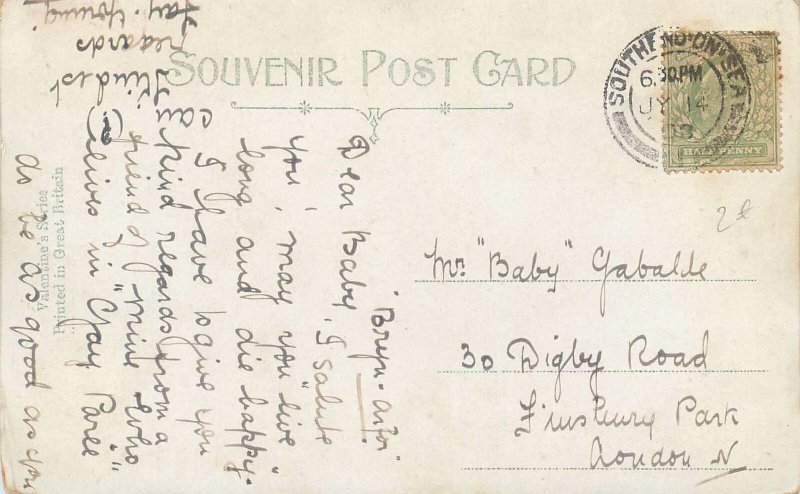 SOUVENIR POST CARD
SOUTHEND-ON-SEA
6.30PM
JY 14
HALFPENNY
2£
Mr. "Baby" Gabalde
30 Digby Road
Finsbury Park
London N
"Bryn-
Dear Baby, I salute
you, may you "live
long and die happy".
I have to give you
kind regards from a
friend of mine who
lives in "Gay Paree"
as be as good as you
can
Kindest
regards
Fay. Young
Valentine's Series
Printed in Great Britain